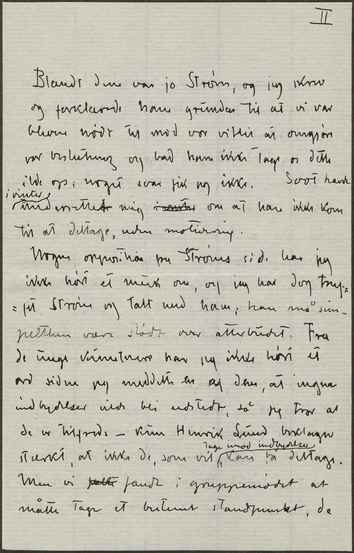 II
Blandt dem var jo Strøm, og jeg skrev
og forklarede ham grunden til at vi var
blevne nødt til mod vor villie at omgjøre
vor beslutning og bad ham ikke tage os dette
ilde op; noget svar fik jeg ikke. Soot havde
i vinter
underrettet mig om at han ikke kom
til at deltage, uden motivering.
Nogen opposition fra Strøms side har jeg
ikke hørt et muk om, og jeg har dog
Strøm og talt med ham; han må sim-
pelthen være stødt over afterbudet. Fra
de unge kunstnere har jeg ikke hørt et
ord siden jeg meddelte en af dem, at ingen
indbydelser vilde bli udstedt, så jeg tror at
de er tilfreds – kun Henrik Lund beklager
mod indbydelser
stærkt, at ikke de, som vil, kan få deltage.
Men vi fandt i gruppemødet at
måtte tage et bestemt standpunkt, da